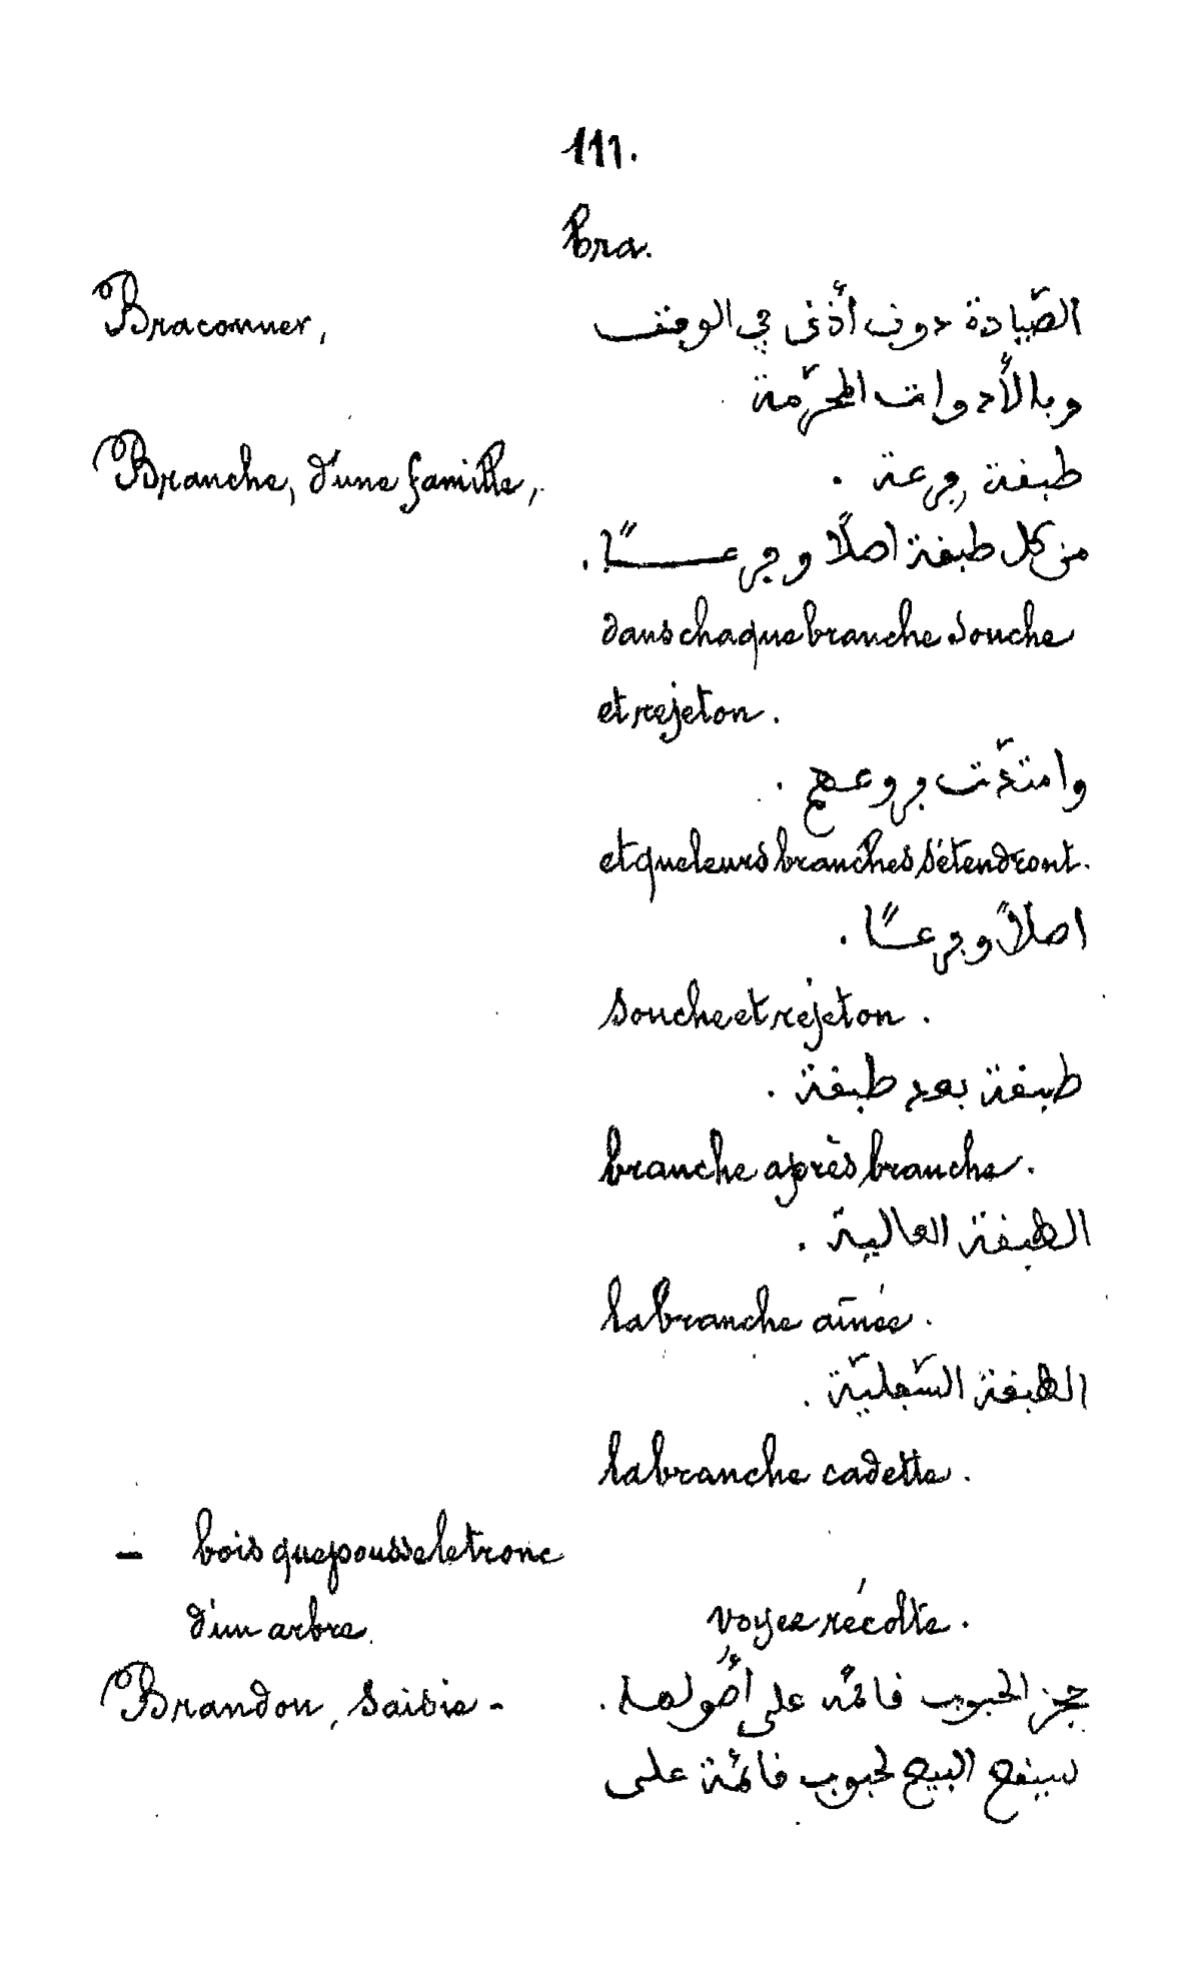 111.
Bra.
Braconner, الصّيادة دون أُذن في الوقت
وبالأدوات المحرّمة
Branche, d'une famille, طبقة, فرعة .
من كل طبقة اصلًا وفرعًا .
dans chaque branche souche
et rejeton .
وامتدّت فروعهم .
et que leurs branches s'étendront.
اصلاً وفرعًا .
souche et rejeton .
طبقة بعد طبقة .
branche après branche .
الطبقة العالية .
la branche aînée .
الطبقة السّفليّة .
la branche cadette .
– bois que pousse le tronc
d'un arbre. voyez récolte .
Brandon, saisie - حجز الحبوب قائمة على أُصولها .
سيقع البيع لحبوب قائمة على